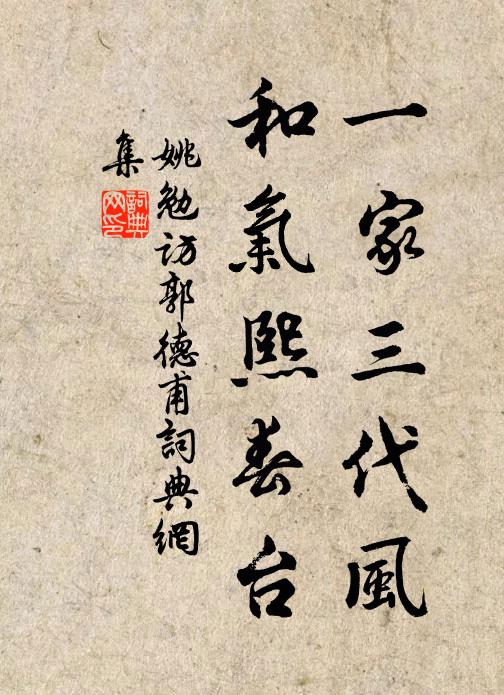 一家三代風
和氣熙春台
姚勉訪郭德甫詞典網
集
詞典
网印